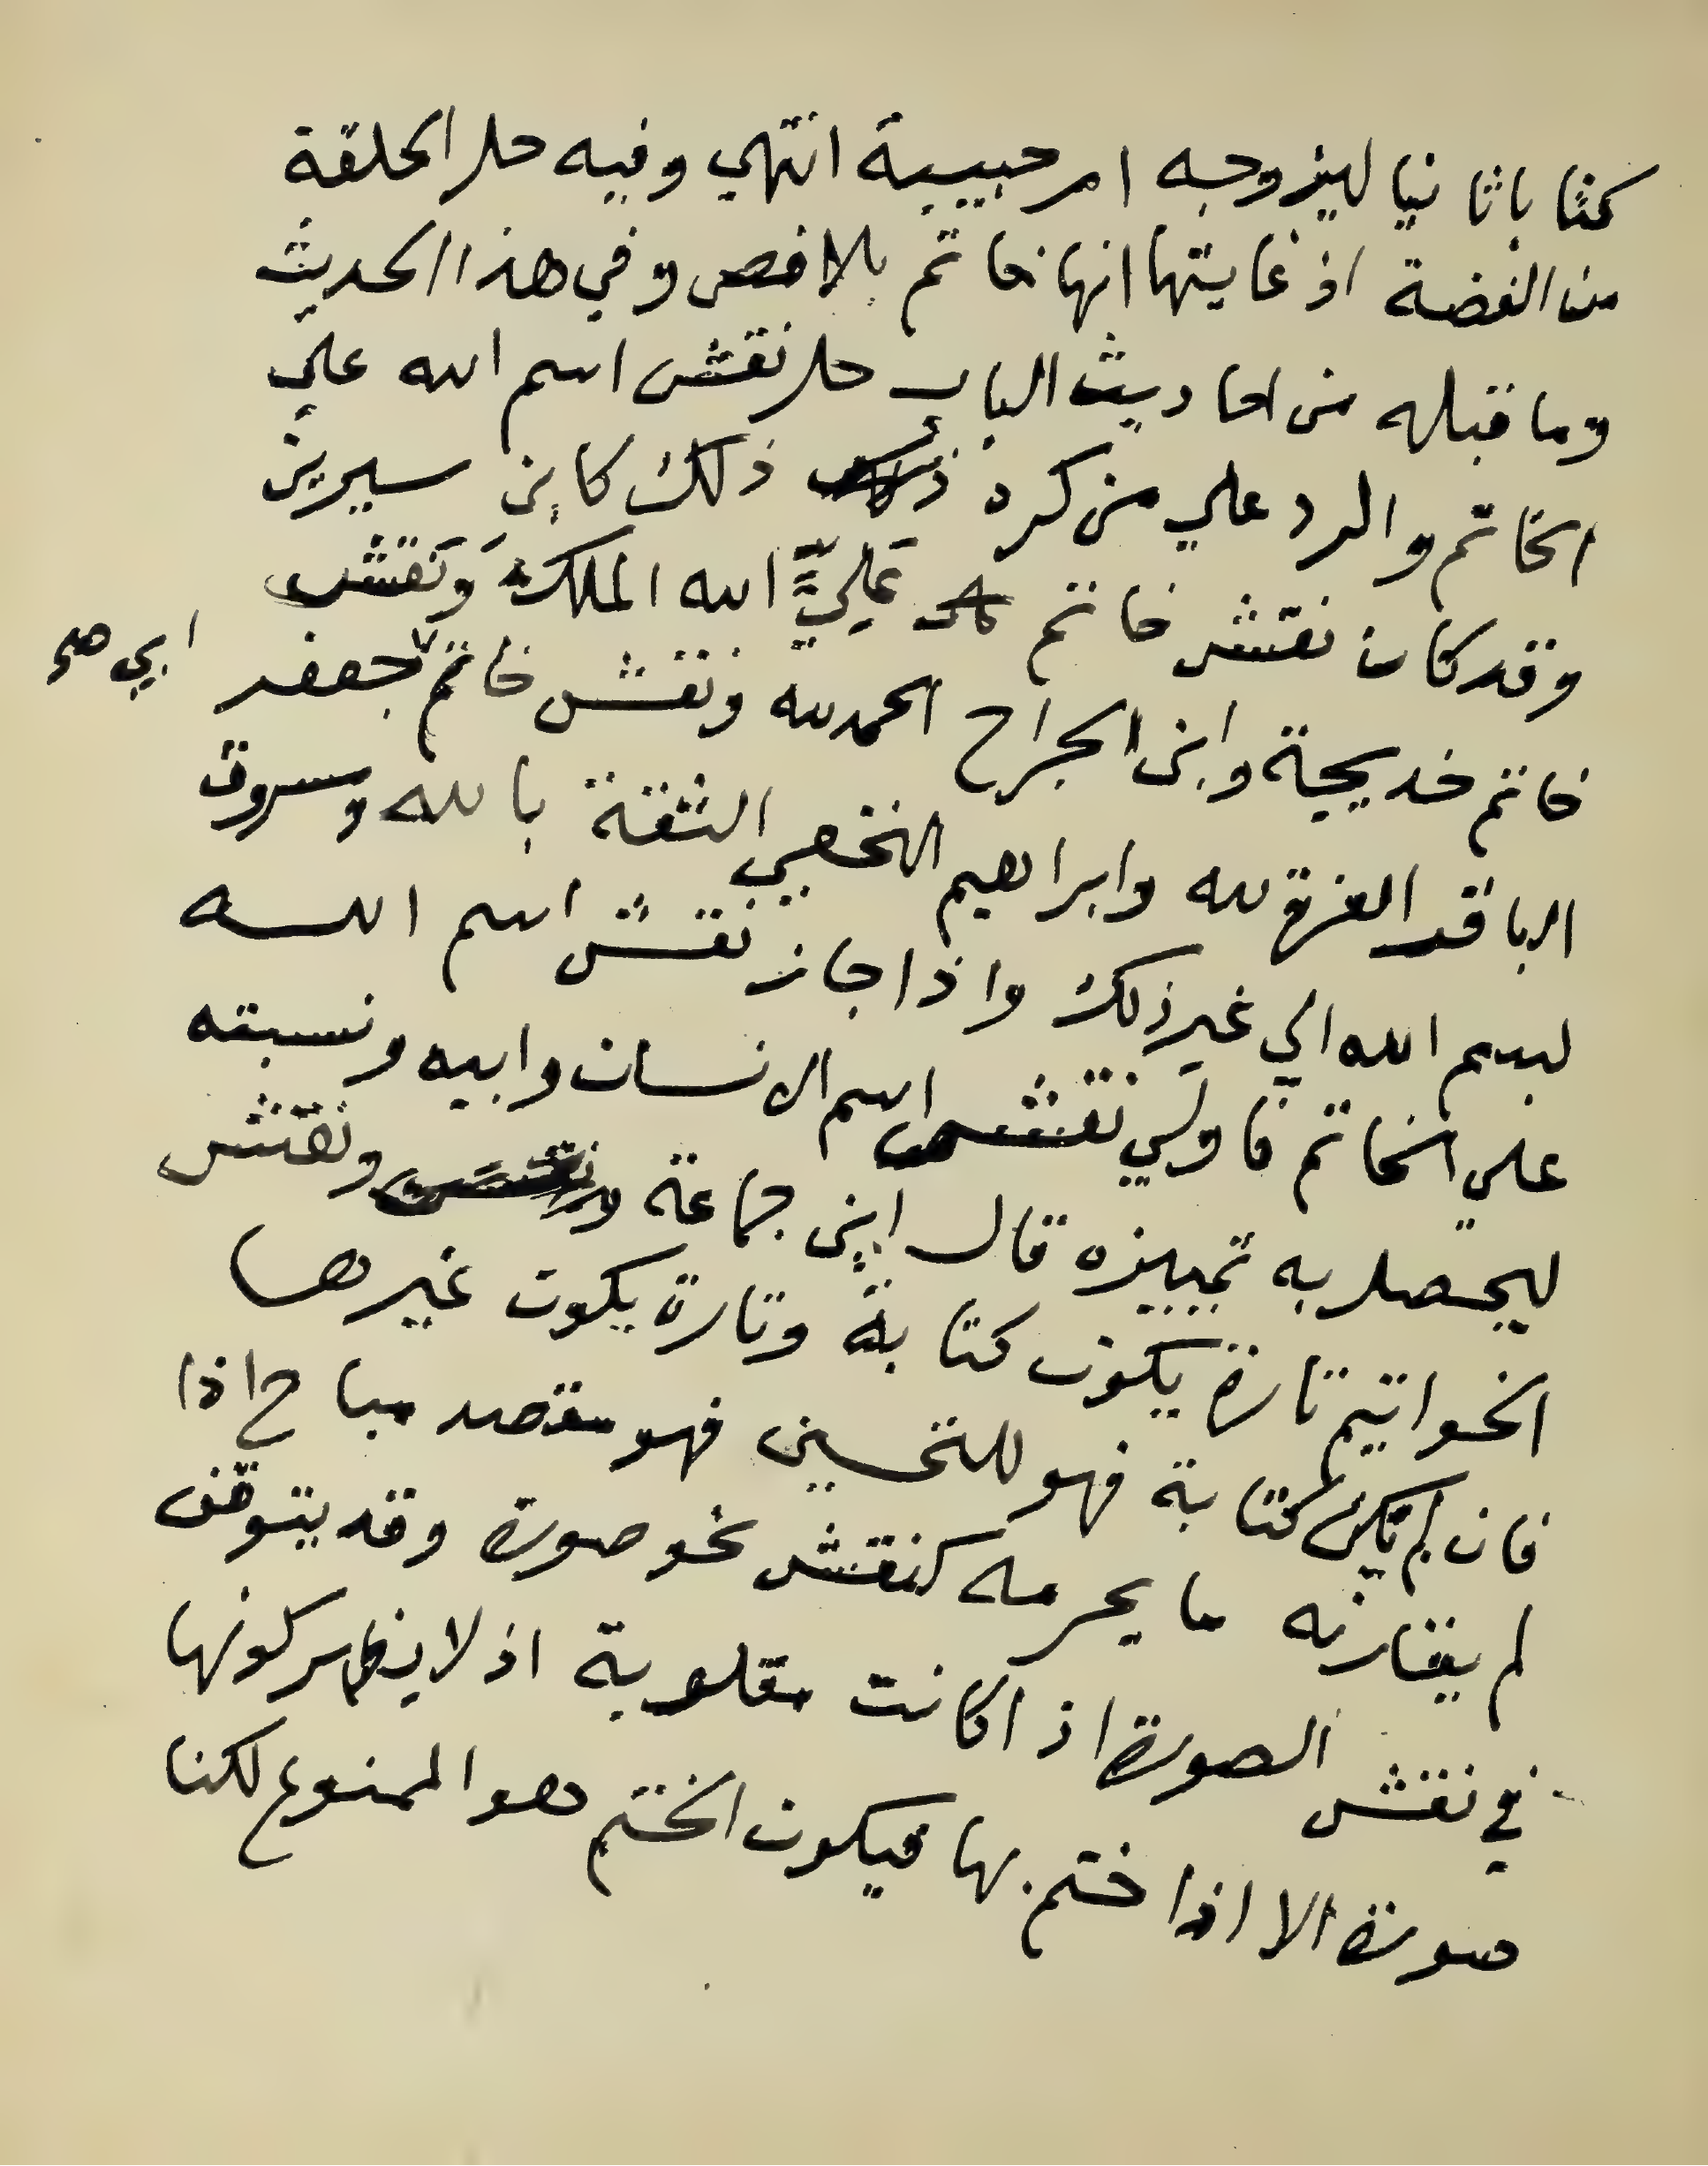 كتابا ثانيا ليزوجه ام حبيبة انتهي وفيه حل الحلقة
من الفضة اذ غايتها انها خاتم بلا فص وفي هذا الحديث
وما قبله من احاديث الباب حل نقش اسم الله علي
الخاتم والرد علي من كره ذلك كابن سيرين
وقد كان نقش خاتم عَلِيٍّ الله الملك وَنقش
خاتم خديجة وابن الجراح الحمد لله ونقش خاتم جعفر ابي
الباقر العزة لله وابراهيم النخعي الثقة بالله ومسروق
لبسم الله الي غير ذلك واذا جاز نقش اسم اللــه
علي الخاتم فاولي نقش اسم الانسان وابيه ونسبته
ليحصل به تمييزه قال ابن جماعة ونقش
الخواتيم تارة يكون كتابة وتارة يكون غيرها
فان لم تكن كتابة فهو للتحسين فهو مقصد مباح اذا
لم يقارنه ما يحرمه كنقش نحو صورة وقد يتوقف
في نقش الصورة اذا كانت مقلوبة اذ لا يظهر كونها
صورة الا اذا ختم بها فيكون الختم هو الممنوع لكنا